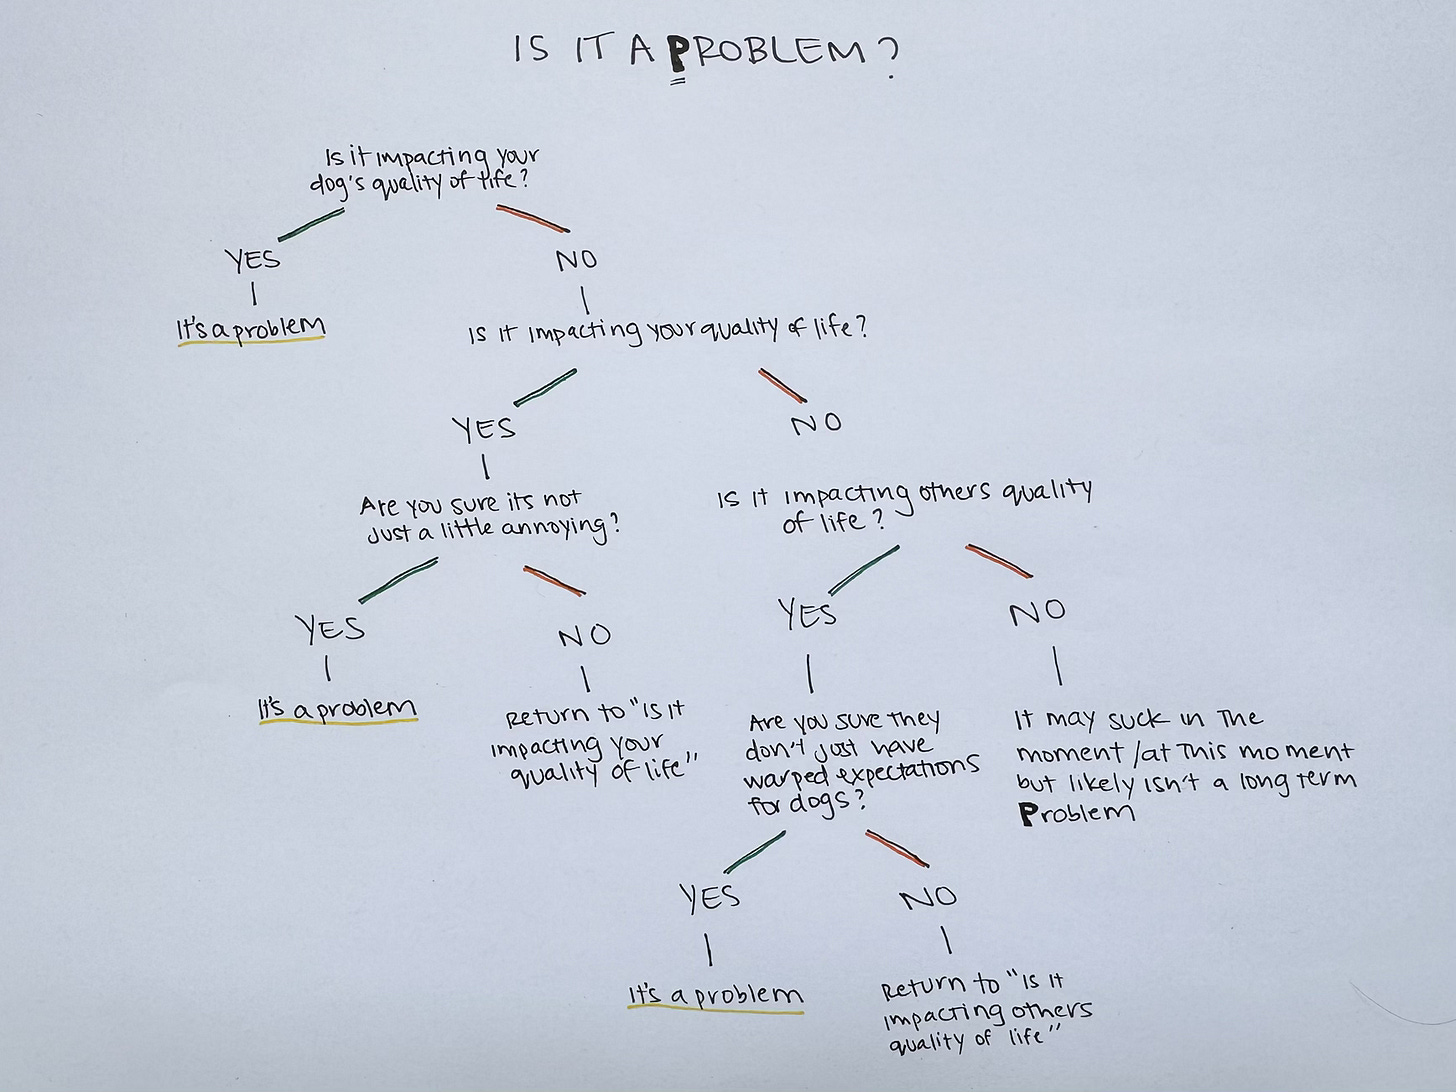 IS IT A PROBLEM?
Is it impacting your
dog's quality of life?
YES
NO
It's a problem
Is it impacting your quality of life?
YES
NO
Are you sure its not
just a little annoying?
Is it impacting others quality
of life?
YES
NO
YES
NO
It's a problem
Return to "Is it
impacting your
quality of life"
Are you sure they
don't just have
warped expectations
for dogs?
It may suck in the
moment/at this moment
but likely isn't a long term
Problem
YES
NO
It's a problem
Return to "Is it
impacting others
quality of life"